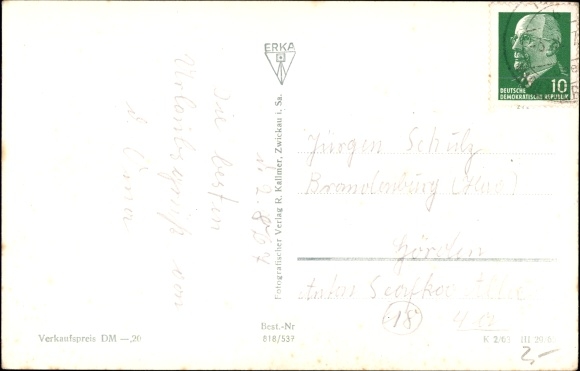 ERKA
10
DEUTSCHE
DEMOKRATISCHE REPUBLIK
Die besten
Urlaubsgrüße von
d. Oma
Fotografischer Verlag R. Kallmer, Zwickau i. Sa.
Jürgen Schulz
Brandenburg (Havel)
Görden
Anton Saefkow Allee
18
Best.-Nr
818/537
Verkaufspreis DM —,20
K 2/63 III 29/6
2,-